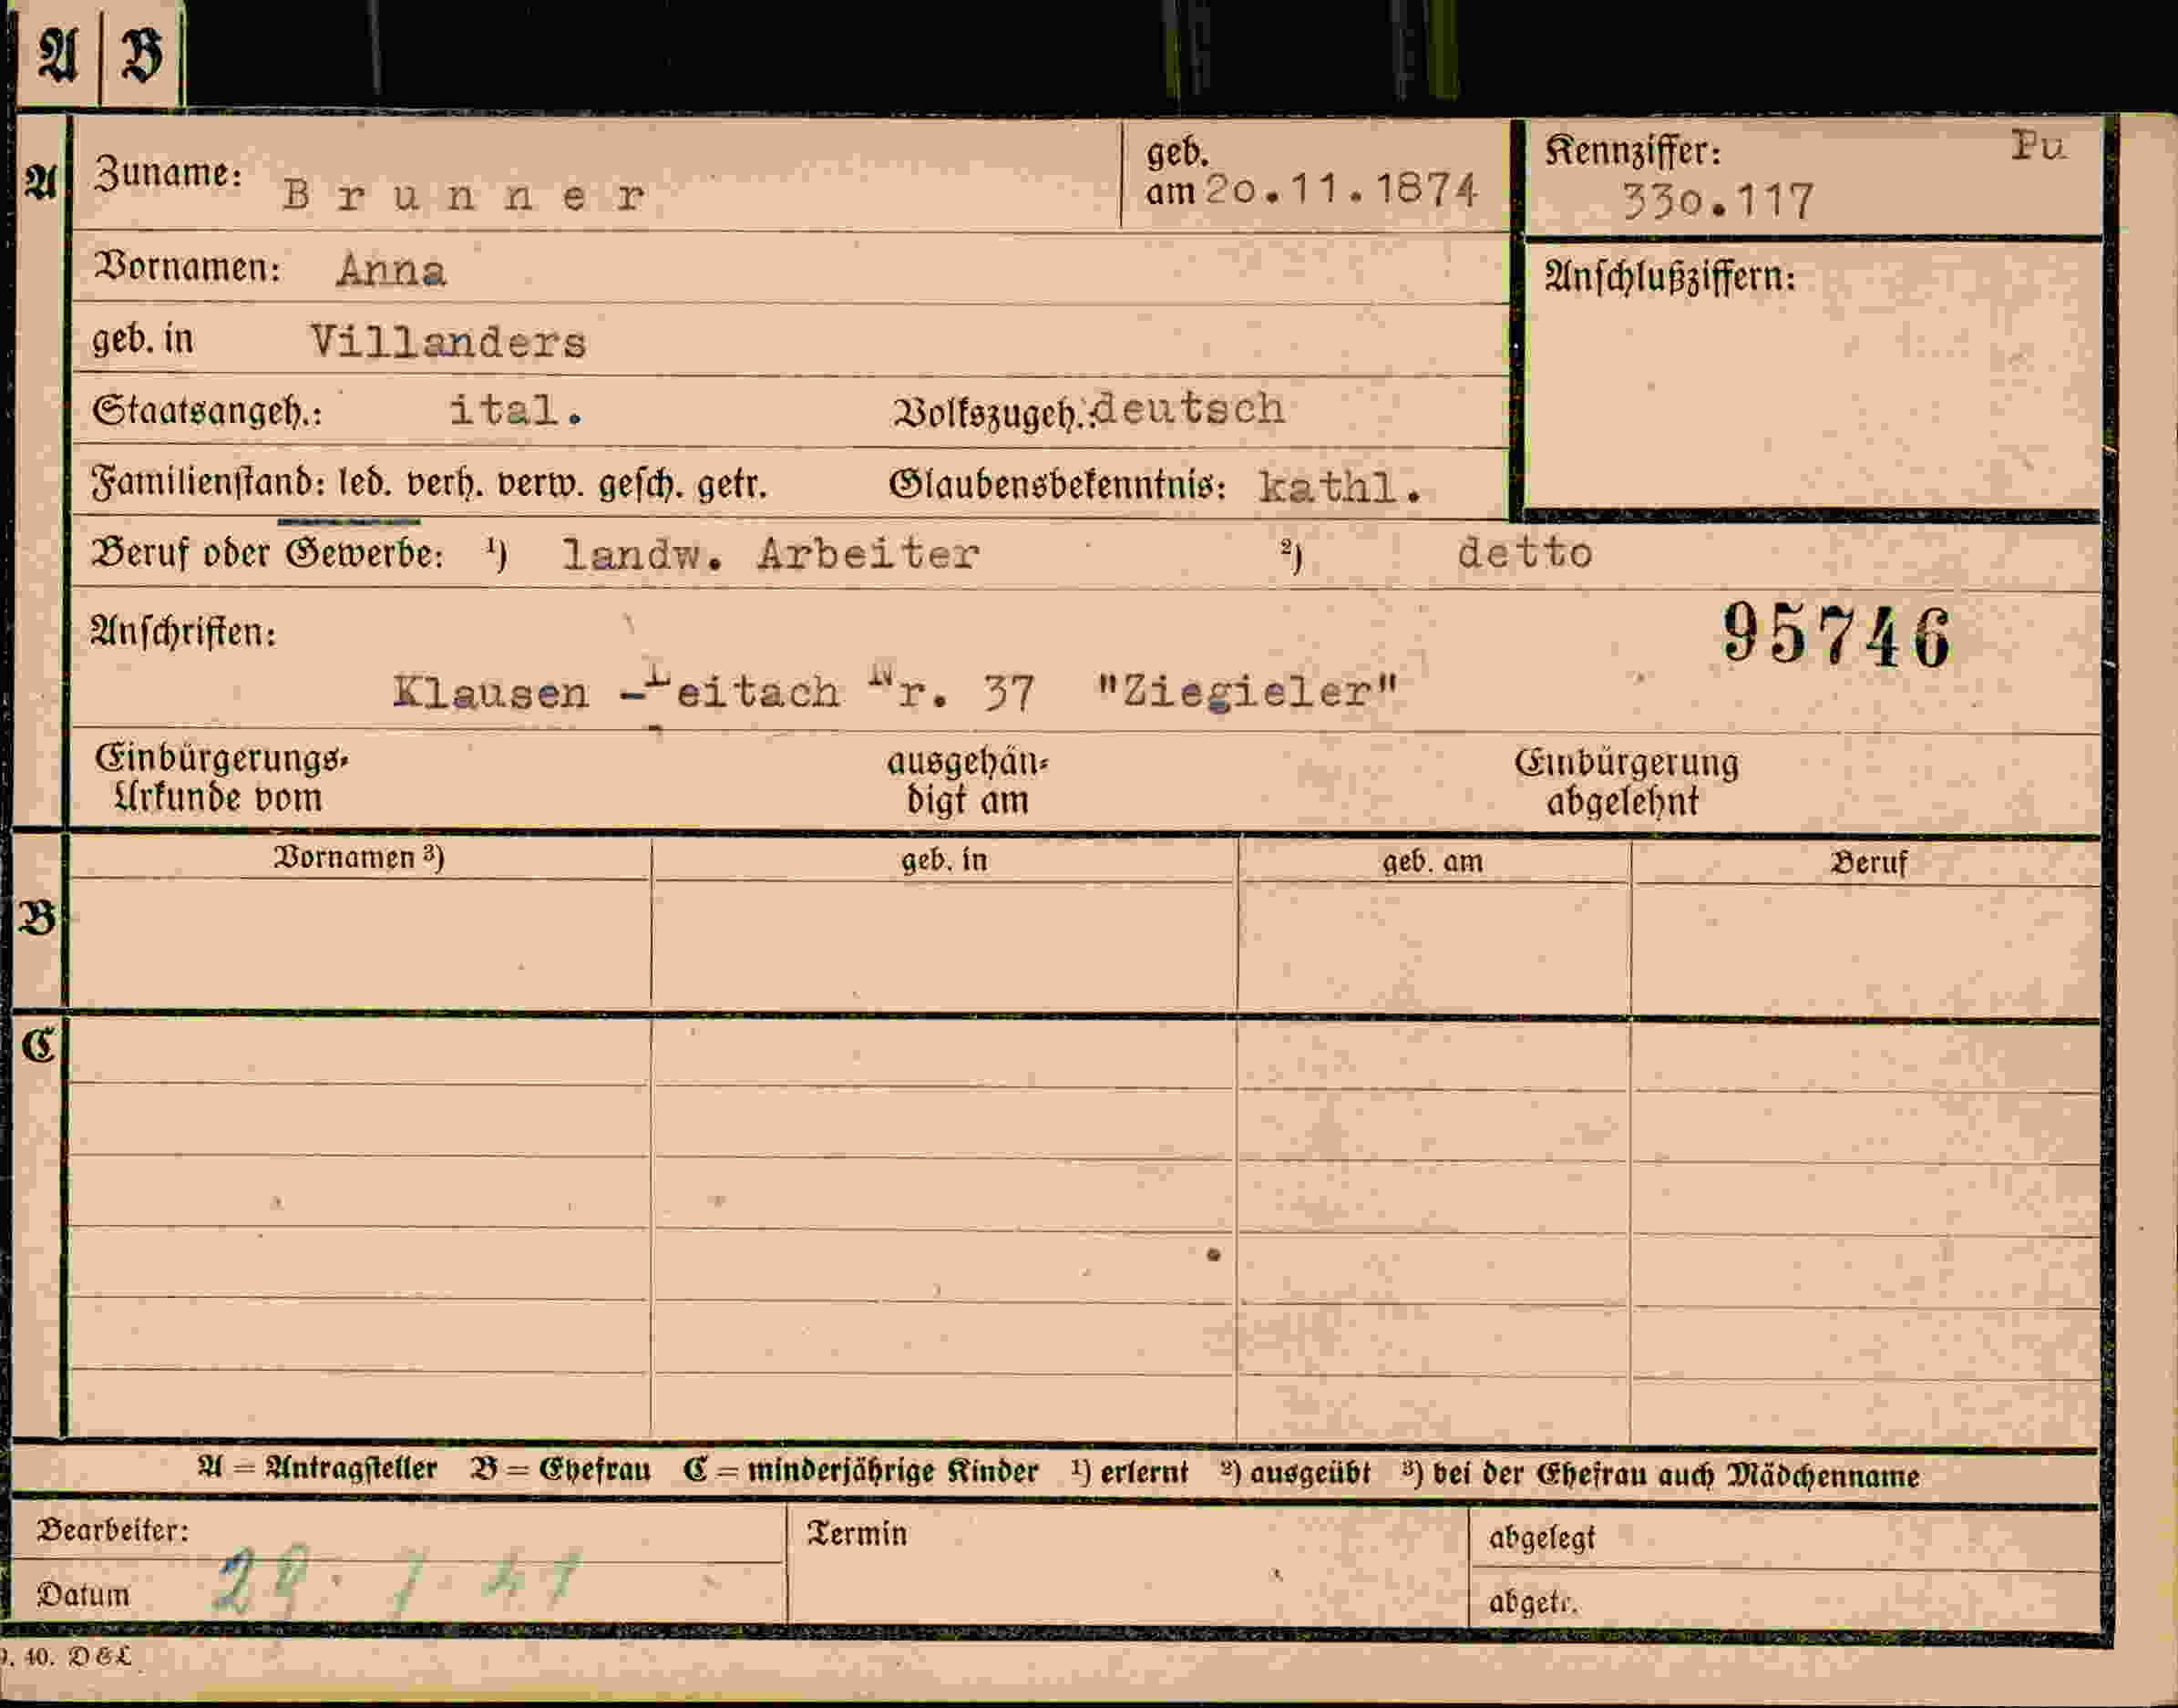 A B
A Zuname: Brunner geb. am 20.11.1874 Kennziffer: 330.117 Pu
Vornamen: Anna Anschlußziffern:
geb. in Villanders
Staatsangeh.: ital. Volkszugeh.: deutsch
Familienstand: led. verh. verw. gesch. getr. Glaubensbekenntnis: kathl.
Beruf oder Gewerbe: ¹) landw. Arbeiter ²) detto
Anschriften: 95746
Klausen - Leitach Nr. 37 "Ziegieler"
Einbürgerungs- ausgehän- Einbürgerung
Urkunde vom digt am abgelehnt
Vornamen ³) geb. in geb. am Beruf
B
C
A = Antragsteller B = Ehefrau C = minderjährige Kinder ¹) erlernt ²) ausgeübt ³) bei der Ehefrau auch Mädchenname
Bearbeiter: Termin abgelegt
Datum abgetr.
40. D&L